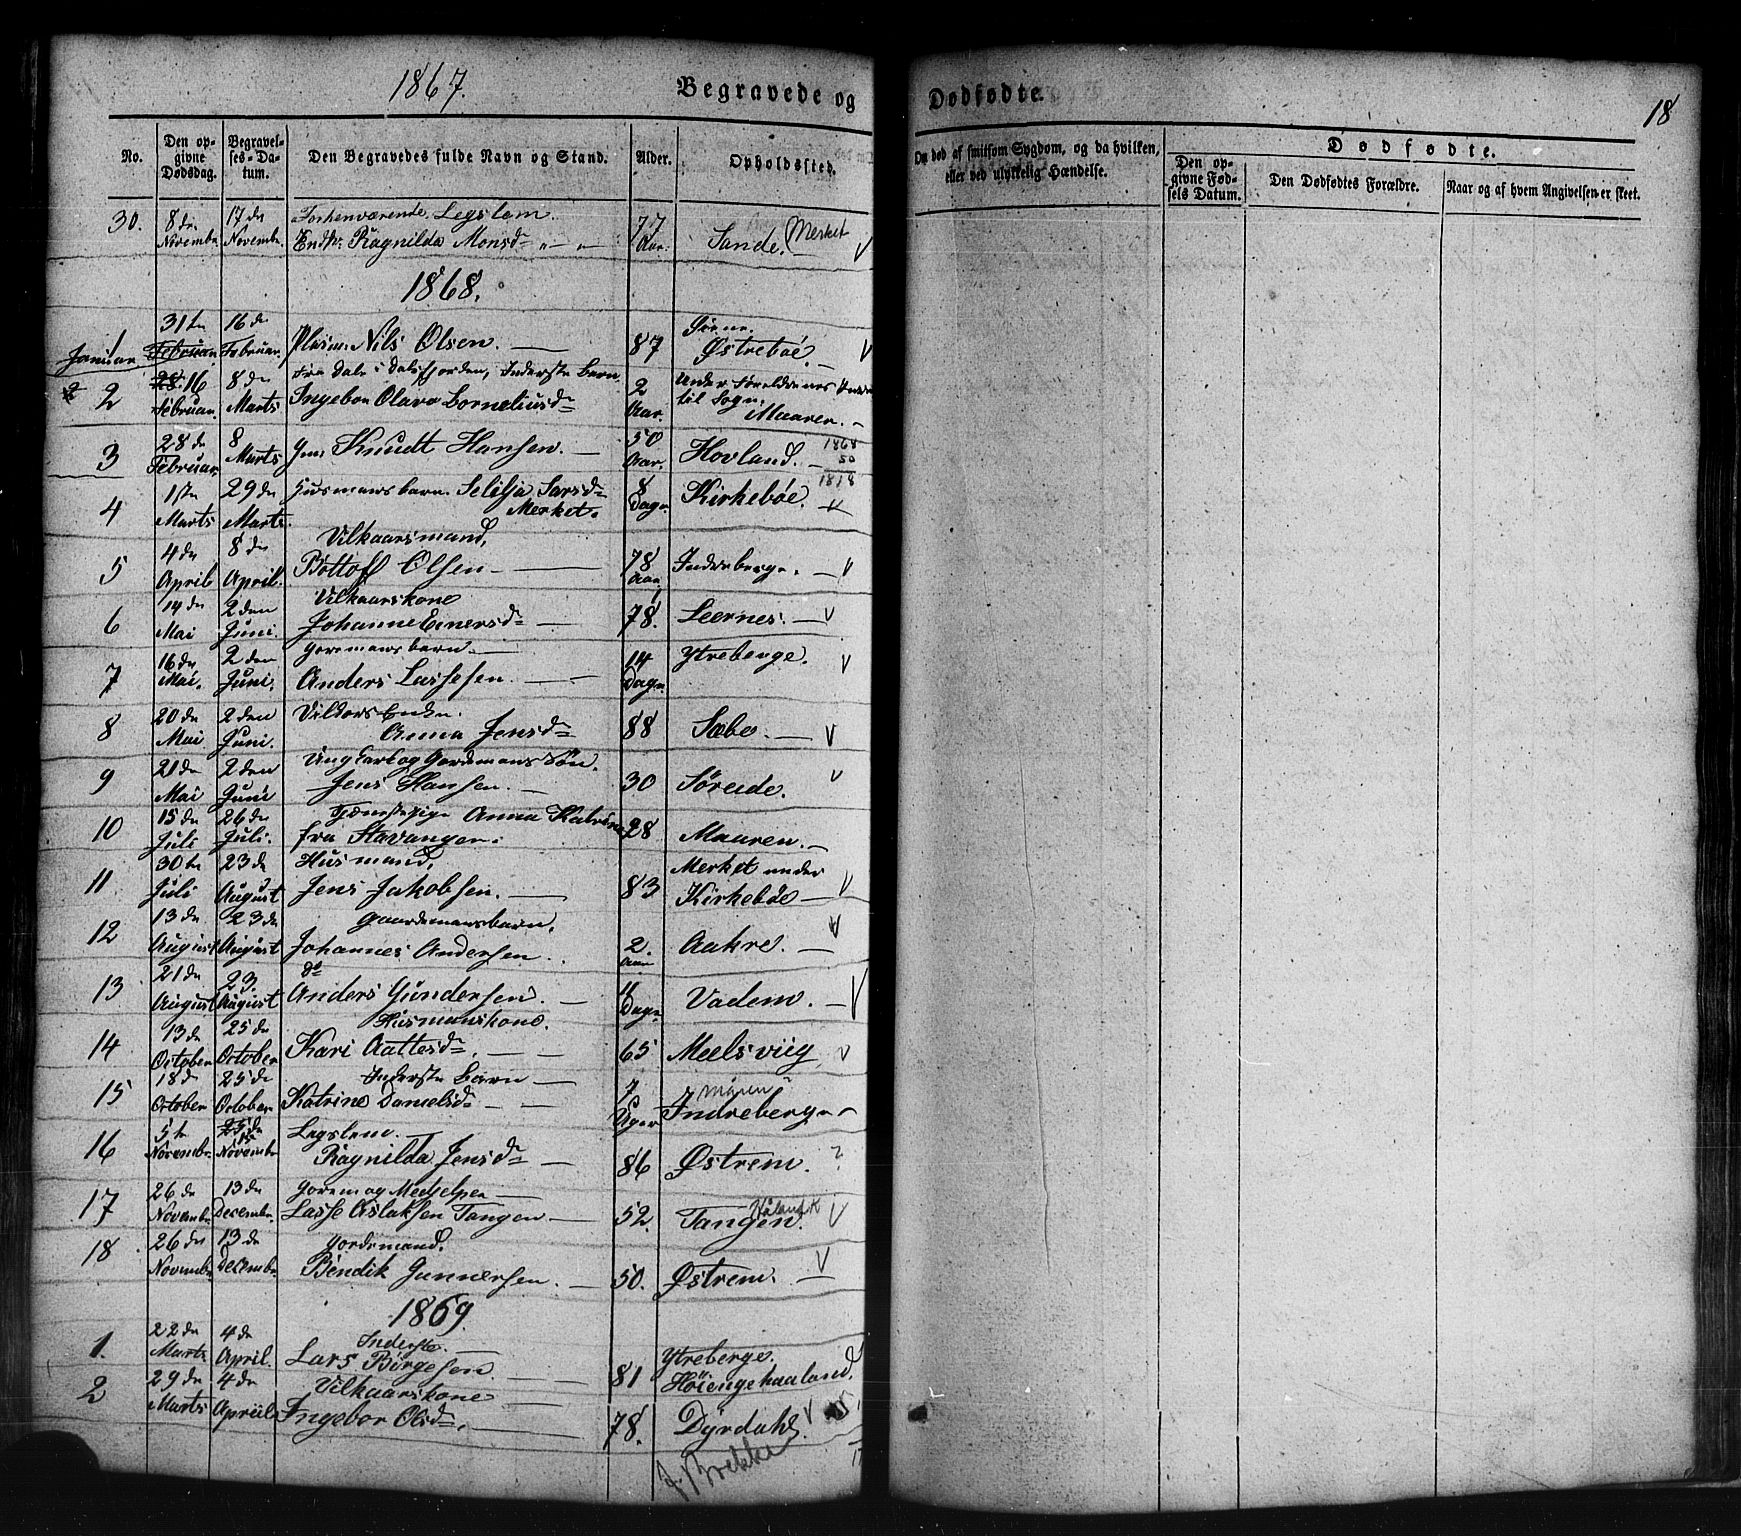 1867.
Begravede og Dødfødte.
18
No.
Den opgivne Dødsdag.
Begravelses-Datum.
Den Begravedes fulde Navn og Stand.
Alder.
Opholdssted.
Om død af smitsom Sygdom, og da hvilken, eller ved ulykkelig Hændelse.
Dødfødte.
Den opgivne Fødsels Datum.
Den Dødfødtes Forældre.
Naar og af hvem Angivelsen er skeet.
30. 8de Novembr. 17de Novembr. Forhenværende Legslem
Enke Ragnilda Monsd 77 Aar. Sande. Merket
1868.
Januar 31te Februar 16de Februar. Nils Olsen. 87 Østrebøe
2 28. 16 Februar 8de Marts fra Dale i Dalsfjorden, Inderste Barn
Ingebor Olava Corneliusd 2 Aar. Under Foreldrenes
til Sogn. Maaren.
3 28de Februar 8 Marts Knudt Hansen 50 Aar. Hovland. 1868 50 1818
4 1ste Marts 29de Marts Husmansbarn. Larsd 8 Dage Kirkebøe.
Merket.
5 4de April 8de April. Vilkaarsmand,
Bottolf Olsen 78 Aar Indreberge.
6 14de Mai 2den Juni. Vilkaarskone
Johanne Einersd 78. Leernes.
7 16de Mai. 2den Juni. Goremansbarn
Anders Lassesen. 14 Dage Ytreberge.
8 20de Mai 2den Juni. Enke.
Anna Jensd 88 Sæbø.
9 21de Mai 2den Juni Ung Karl og Gordmans Søn.
Jens Hansen. 30 Søreide.
10 15de Juli 26de Juli. Tjenestepige Anna Katrine
fra Stavanger. 28 Maaren.
11 30te Juli 23de August Husmand,
Jens Jakobsen 83 Merket under
Kirkebøe
12 13de August 23de August Gaardmansbarn,
Johannes Andersen 2 Aar Aakre.
13 21de August 23. August do
Anders Gundersen. 11 Dage Vadem.
14 13de October 25de October Husmanskone.
Kari Aattesd 65 Meelsviig
15 18de October 25de October Inderste Barn
Katrine Danielsd 7 Uger Indreberge
16 5te Novembr. 15 Novembr Legslem.
Ragnilda Jensd 86 Østrem. ?
17 26de Novembr. 13de Decembr. Gorem og Medhjelper
Lasse Aslaksen Tangen 52. Tangen.
18 26de Novembr. 13de Decembr. Gordemand.
Bendik Gunnersen. 50. Østrem.
1869
1. 22de Marts 4de April. Inderste
Lars Børgesen 81 Ytreberge.
Høiengehaaland.
2 29de Marts 4de Apriil Vilkaarskone
Ingebor Olsd 78. Dyrdahl.